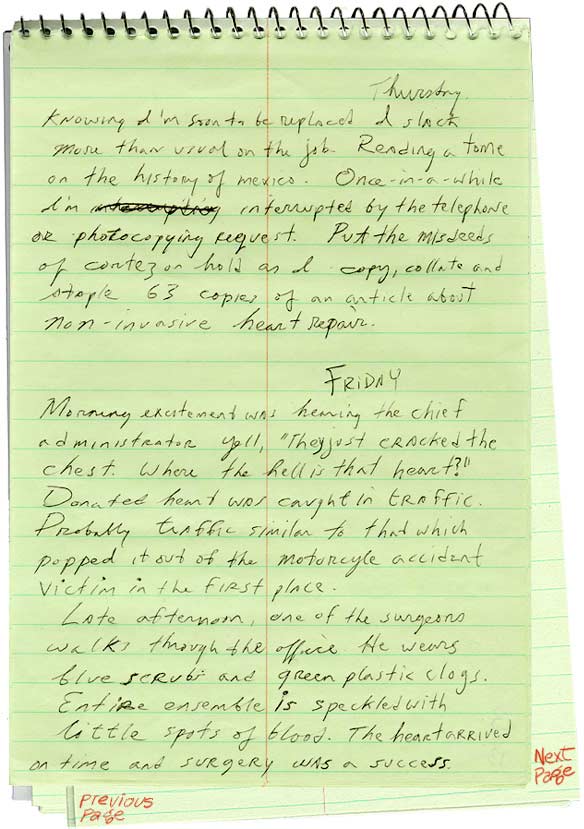 Thursday.
Knowing I'm soon to be replaced I slack
more than usual on the job. Reading a tome
on the history of mexico. Once-in-a-while
I'm interrupted by the telephone
or photocopying request. Put the misdeeds
of cortez on hold as I copy, collate and
staple 63 copies of an article about
non-invasive heart repair.
FRIDAY
Morning excitement was hearing the chief
administrator yell, "They just cracked the
chest. Where the hell is that heart?!"
Donated heart was caught in traffic.
Probably traffic similar to that which
popped it out of the motorcyle accident
victim in the first place.
Late afternoon, one of the surgeons
walks through the office. He wears
blue scrubs and green plastic clogs.
Entire ensemble is speckled with
little spots of blood. The heart arrived
on time and surgery was a success.
Next
Page
Previous
Page